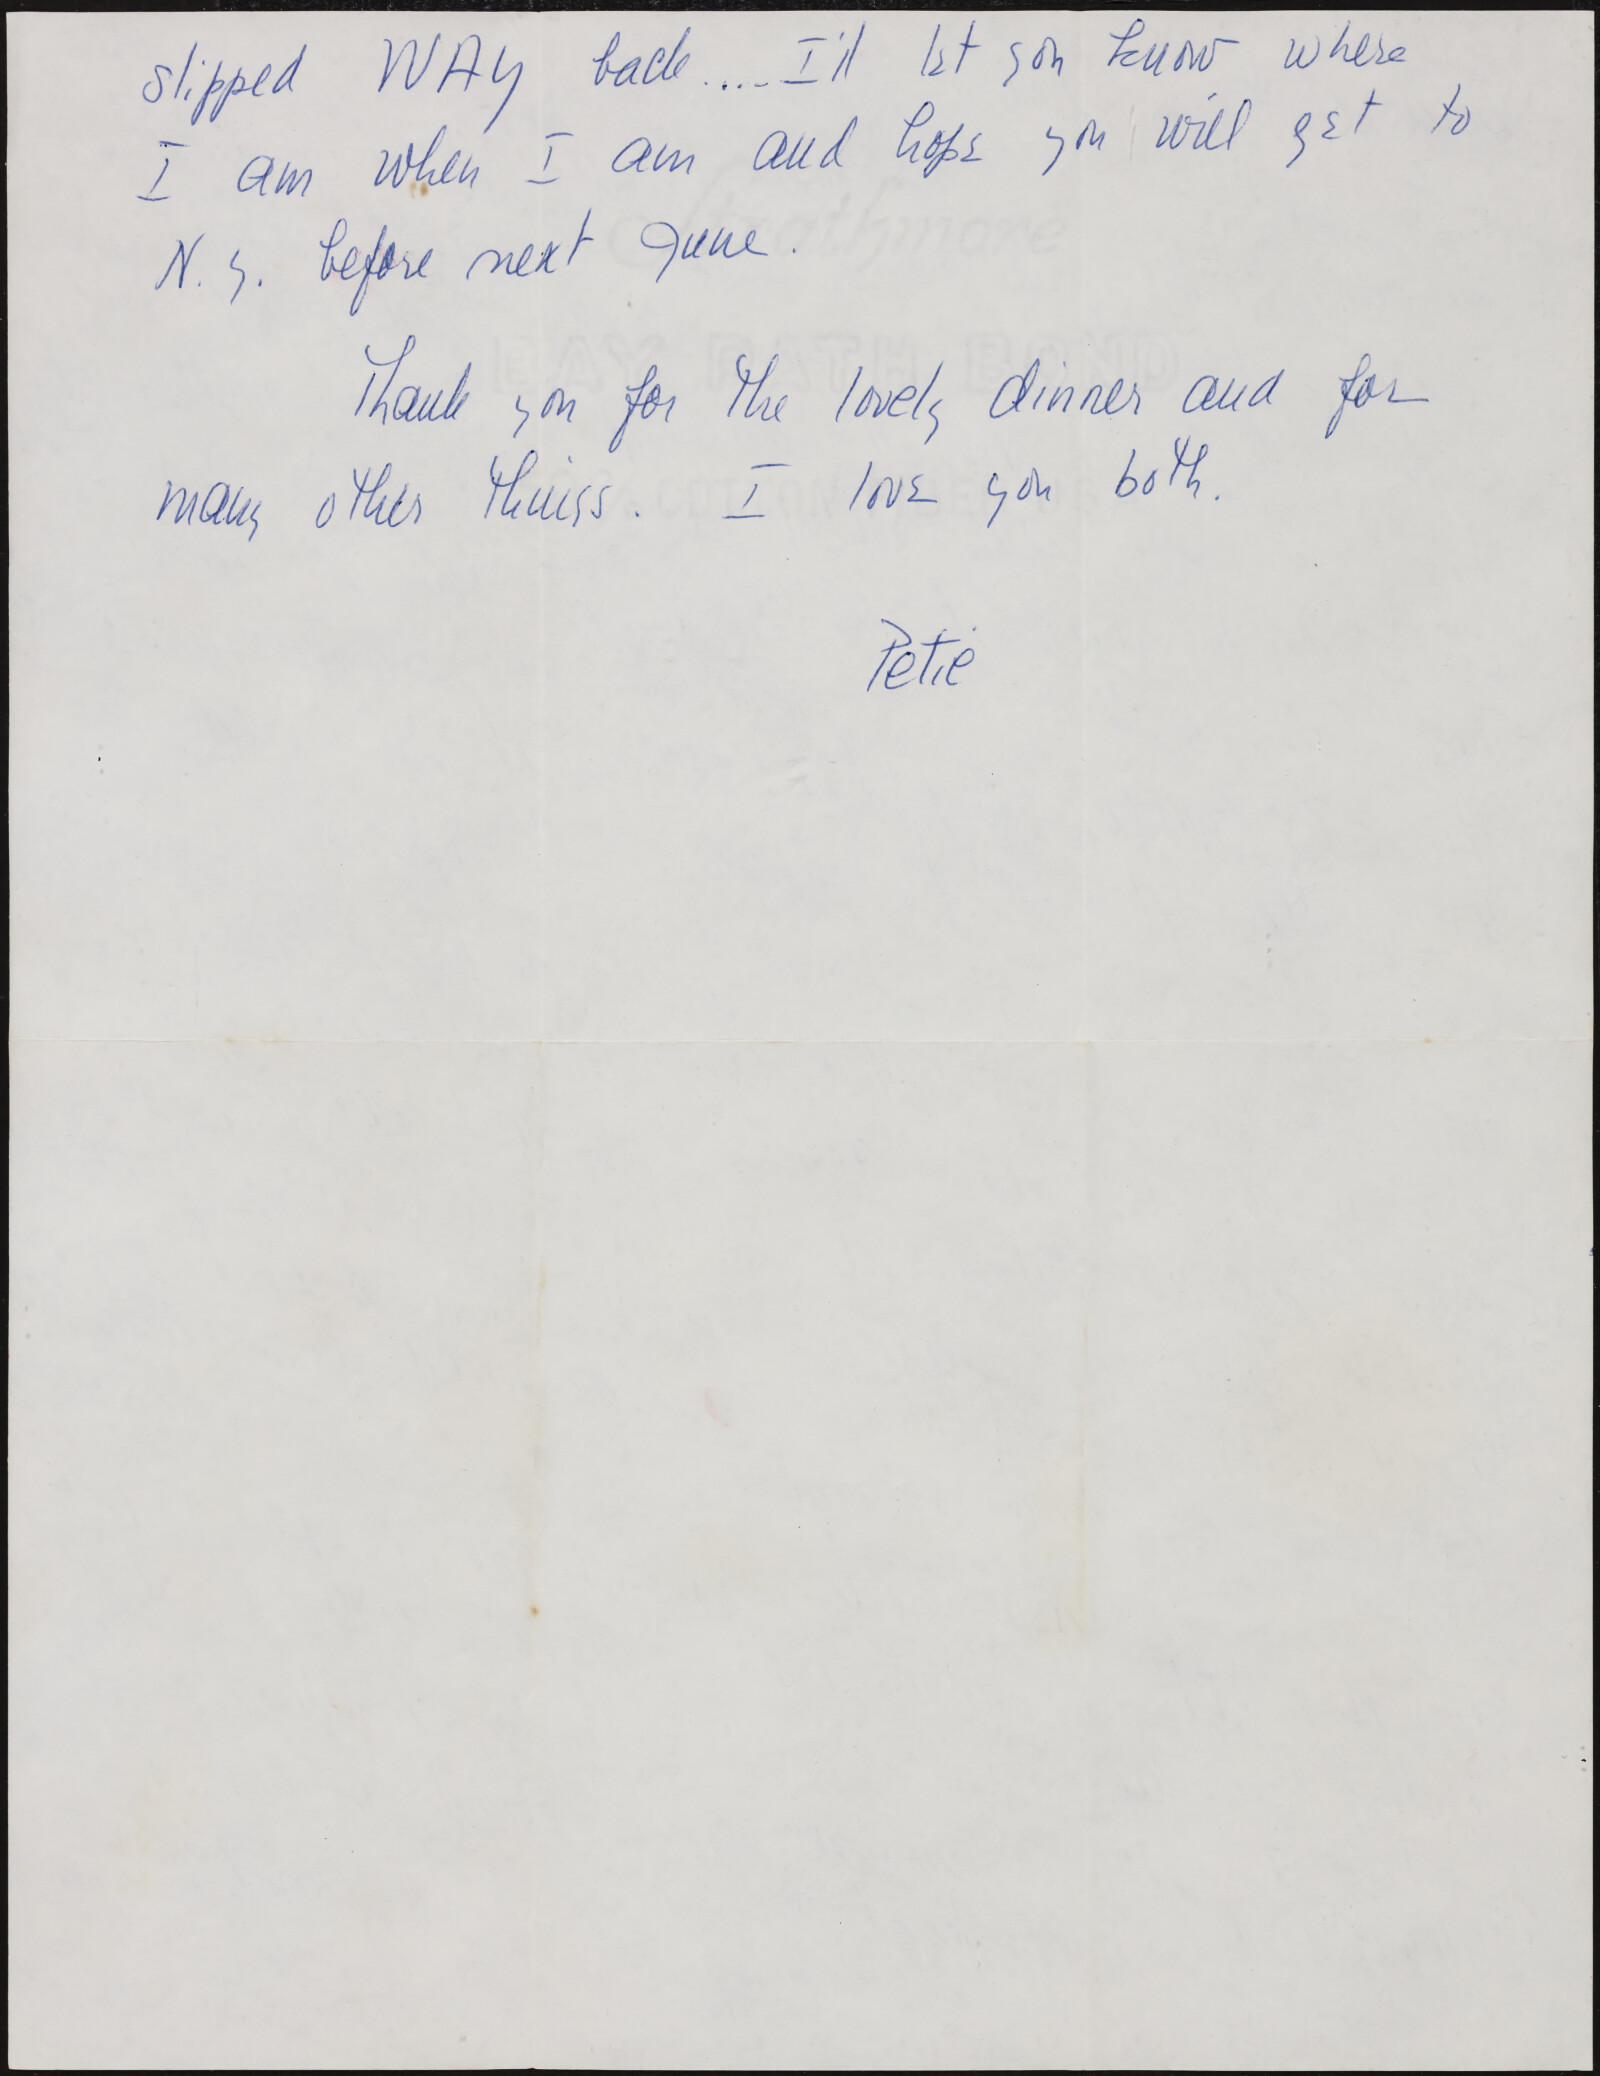 slipped WAY back.... I'll let you know where
I am when I am and hope you will get to
N.Y. before next June.
Thank you for the lovely dinner and for
many other things. I love you both.
Petie
Strathmore
BAY PATH BOND